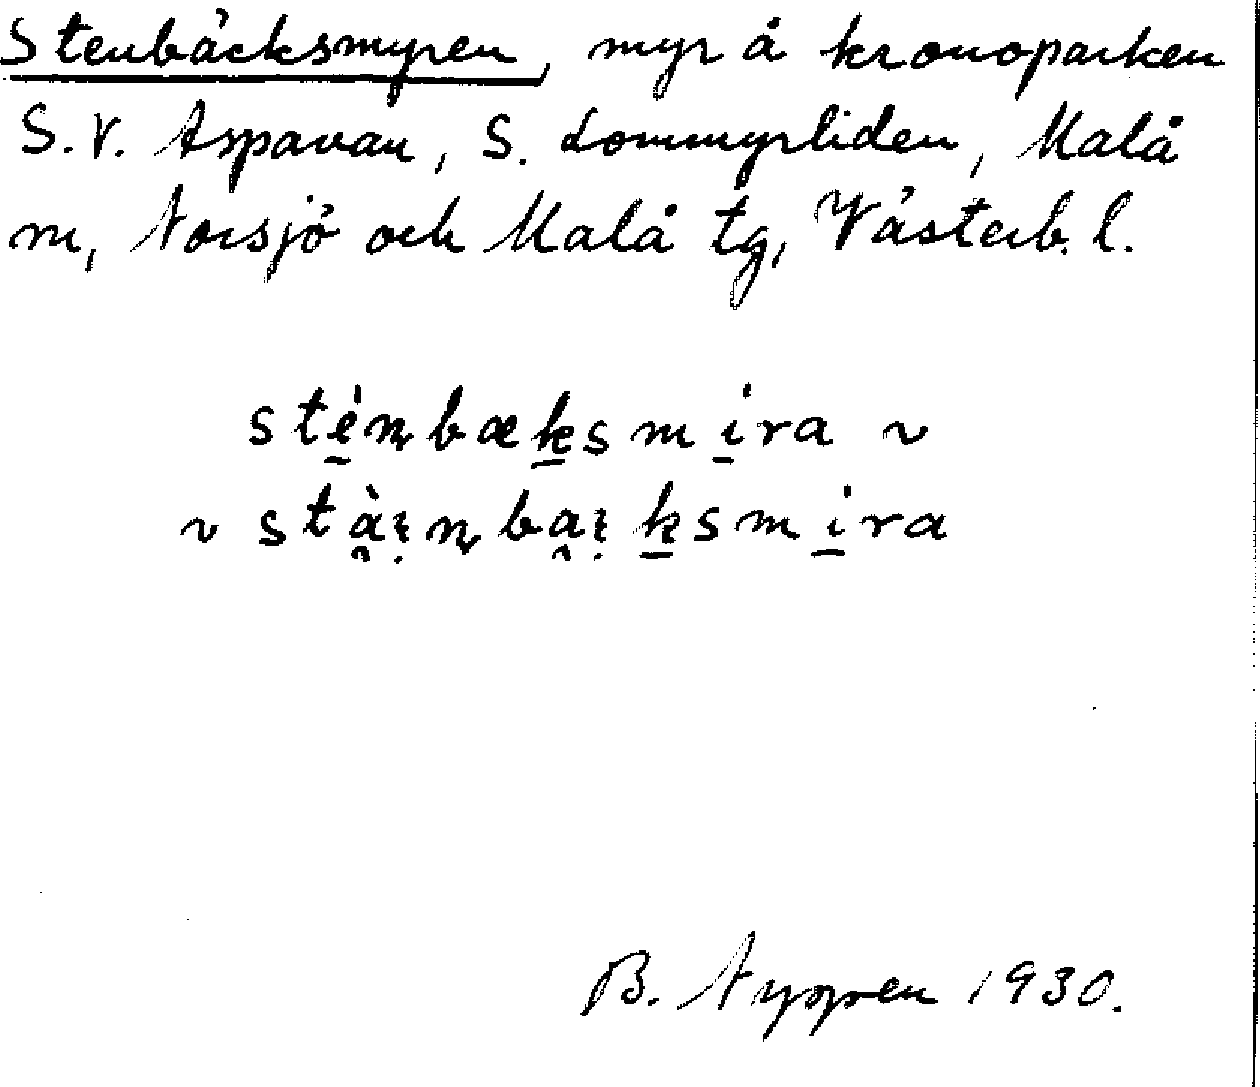 Stenbäcksmyren, myr å kronoparken
S.V. Aspavan, S. Lommyrliden, Malå
m, Norsjö och Malå tg, Västerb. l.
sté̠n̥bæk̠smi̠ra ~
~ stà̰ɩ̣n̥ba̰ɩ̣k̠smi̠ra
B. 1930.